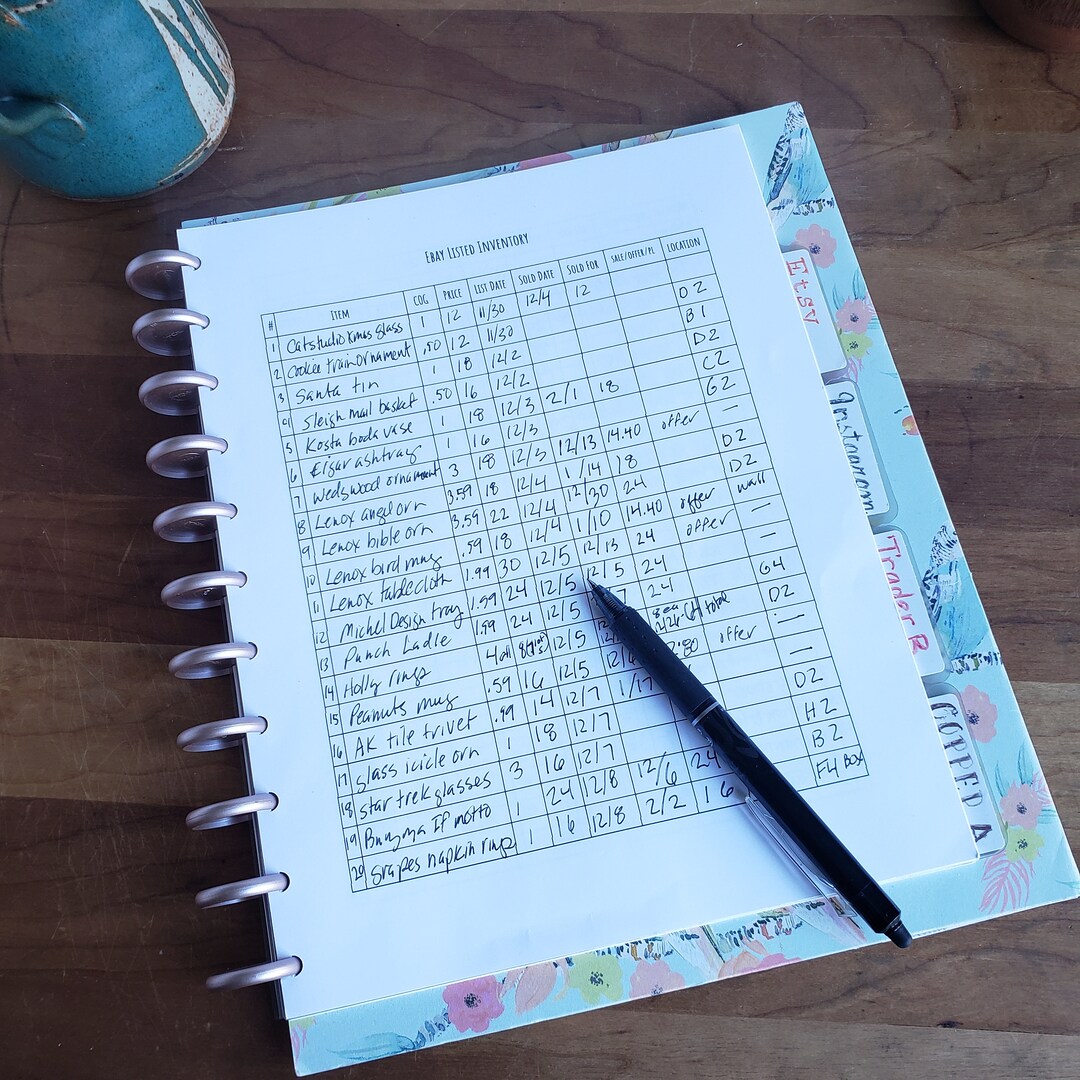 EBAY LISTED INVENTORY
# ITEM COG PRICE LIST DATE SOLD DATE SOLD FOR SALE/OFFER/PL LOCATION
1 Catstudio Xmas glass 1 12 11/30 12/4 12
2 Cookie train Ornament .50 12 11/30 D2
3 Santa tin 1 18 12/2 B1
4 Sleigh mail basket .50 16 12/2 D2
5 Kosta boda vase 1 18 12/3 2/1 18 C2
6 Elgar ashtray 1 16 12/3 G2
7 Wedgwood ornament 3 18 12/3 12/13 14.40 offer —
8 Lenox angel orn 3.59 18 12/4 1/14 18 D2
9 Lenox bible orn 3.59 22 12/4 12/30 24 D2
10 Lenox bird mug .59 18 12/4 1/10 14.40 offer wall
11 Lenox tablecloth 1.99 30 12/5 12/13 24 offer —
12 Michel Design tray 1.99 24 12/5 12/5 24 —
13 Punch Ladle 1.99 24 12/5 24 G4
14 Holly rings 4 all 12/5 8 ea total D2
15 Peanuts mug .59 16 12/5 offer —
16 AK tile trivet .99 14 12/7 1/17 —
17 glass icicle orn 1 18 12/7 D2
18 star trek glasses 3 16 12/7 H2
19 If motto 1 24 12/8 12/6 24 B2
20 grapes napkin rings 1 16 12/8 2/2 16 F4 BOX
Etsy
Instagram
Trader R
COPPED A